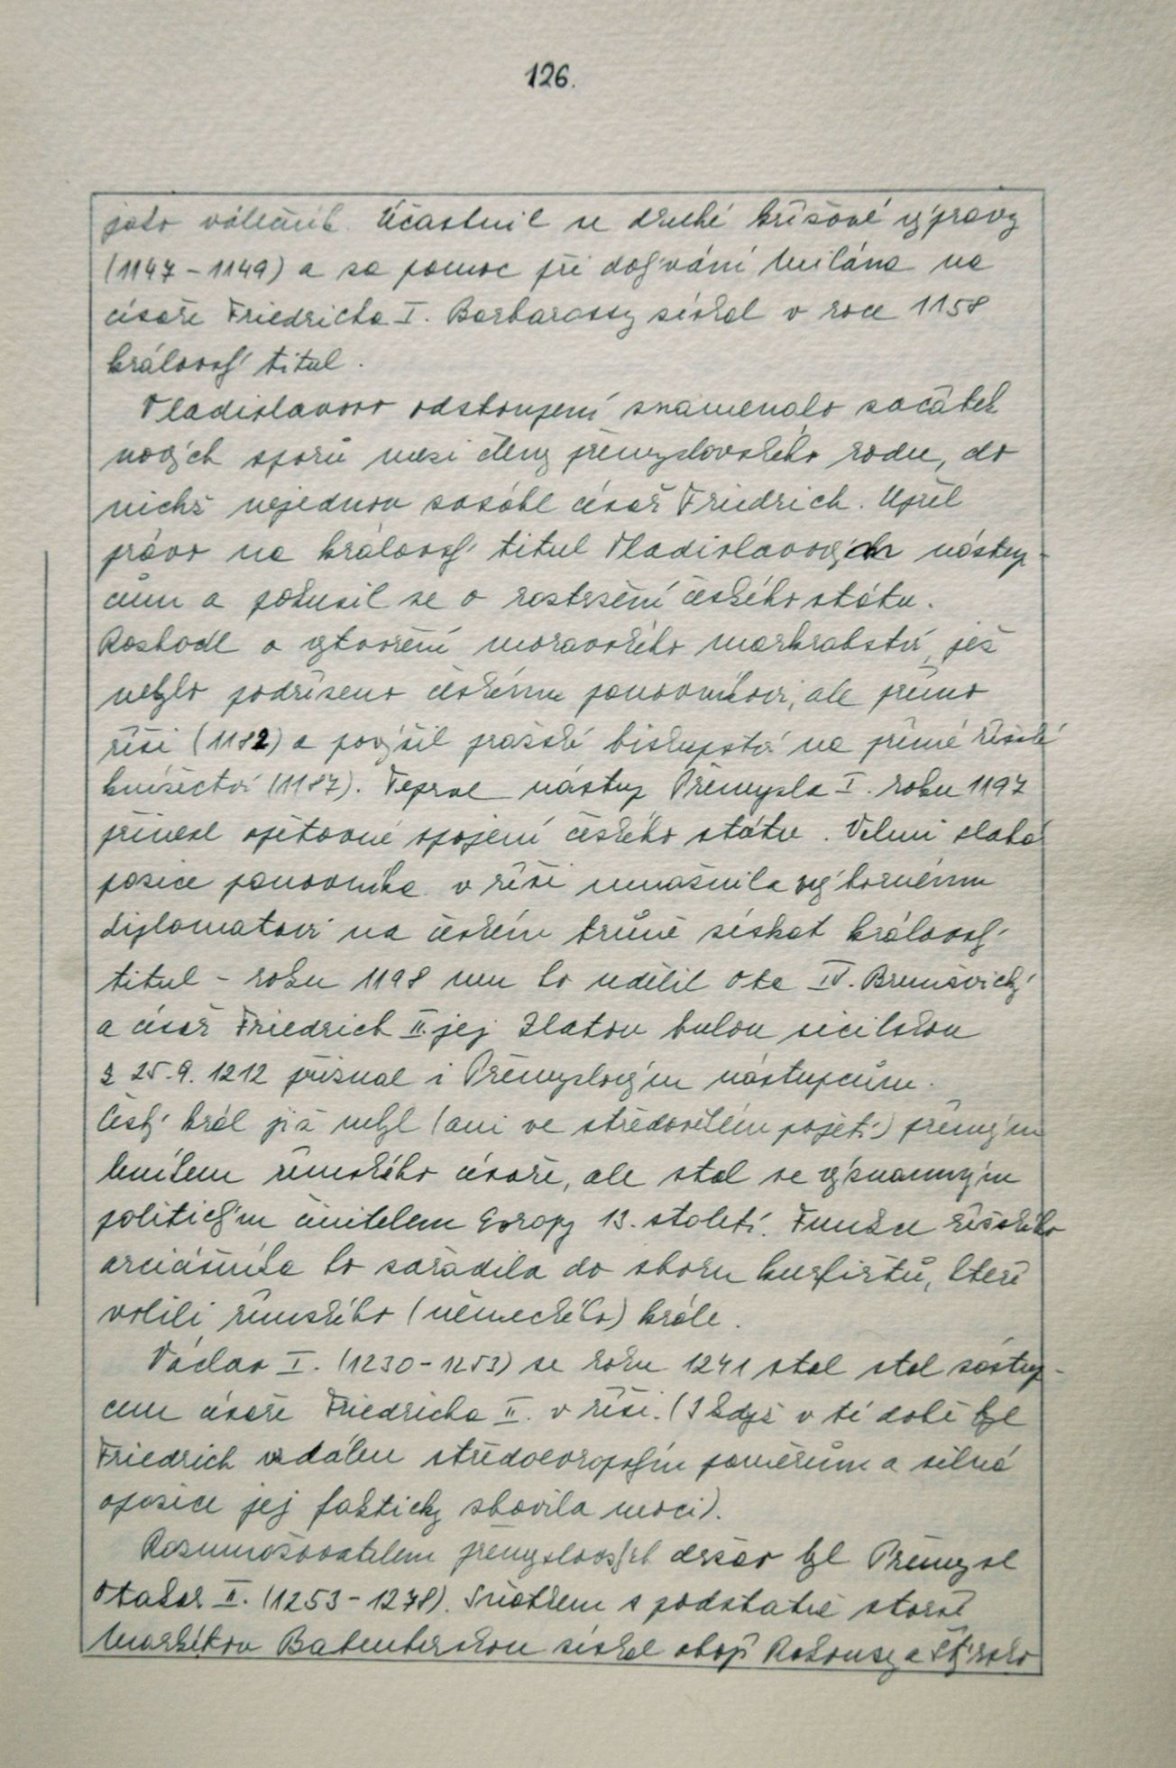 126.
jako válečník. Účastnil se druhé křížové výpravy
(1147-1149) a za pomoc při dobývání Milána na
císaři Friedricha I. Barbarossy získal v roce 1158
královský titul.
Vladislavovo odstoupení znamenalo začátek
nových sporů mezi členy přemyslovského rodu, do
nichž nejednou zasáhl císař Friedrich. Upřel
právo na královský titul Vladislavových nástup-
cům a pokusil se o roztržení českého státu.
Rozhodl o vytvoření moravského markrabství, jež
nebylo podřízeno českému panovníkovi, ale přímo
říši (1182) a povýšil pražské biskupství na přímé říšské
knížectví (1187). Teprve nástup Přemysla I. roku 1197
přinesl opětovné spojení českého státu. Velmi slabá
pozice panovníka v říši umožnila výbornému
diplomatovi na českém trůně získat královský
titul - roku 1198 mu ho udělil Ota IV. Brunšvický
a císař Friedrich II. jej Zlatou bulou sicilskou
z 25.9.1212 přiznal i Přemyslovým nástupcům.
Český král již nebyl (ani ve středověkém pojetí) přímým
leníkem římského císaře, ale stal se významným
politickým činitelem Evropy 13. století. Funkce říšského
arcičíšníka ho zařadila do sboru kurfiřtů, kteří
volili římského (německého) krále.
Václav I. (1230-1253) se roku 1241 stal stal zástup-
cem císaře Friedricha II. v říši. (I když v té době byl
Friedrich vzdálen středoevropským poměrům a silná
opozice jej fakticky zbavila moci).
Rozmnožovatelem přemyslovských držav byl Přemysl
Otakar II. (1253-1278). Sňatkem s podstatně starší
Markétou Babenberskou získal obojí Rakousy a Štýrsko